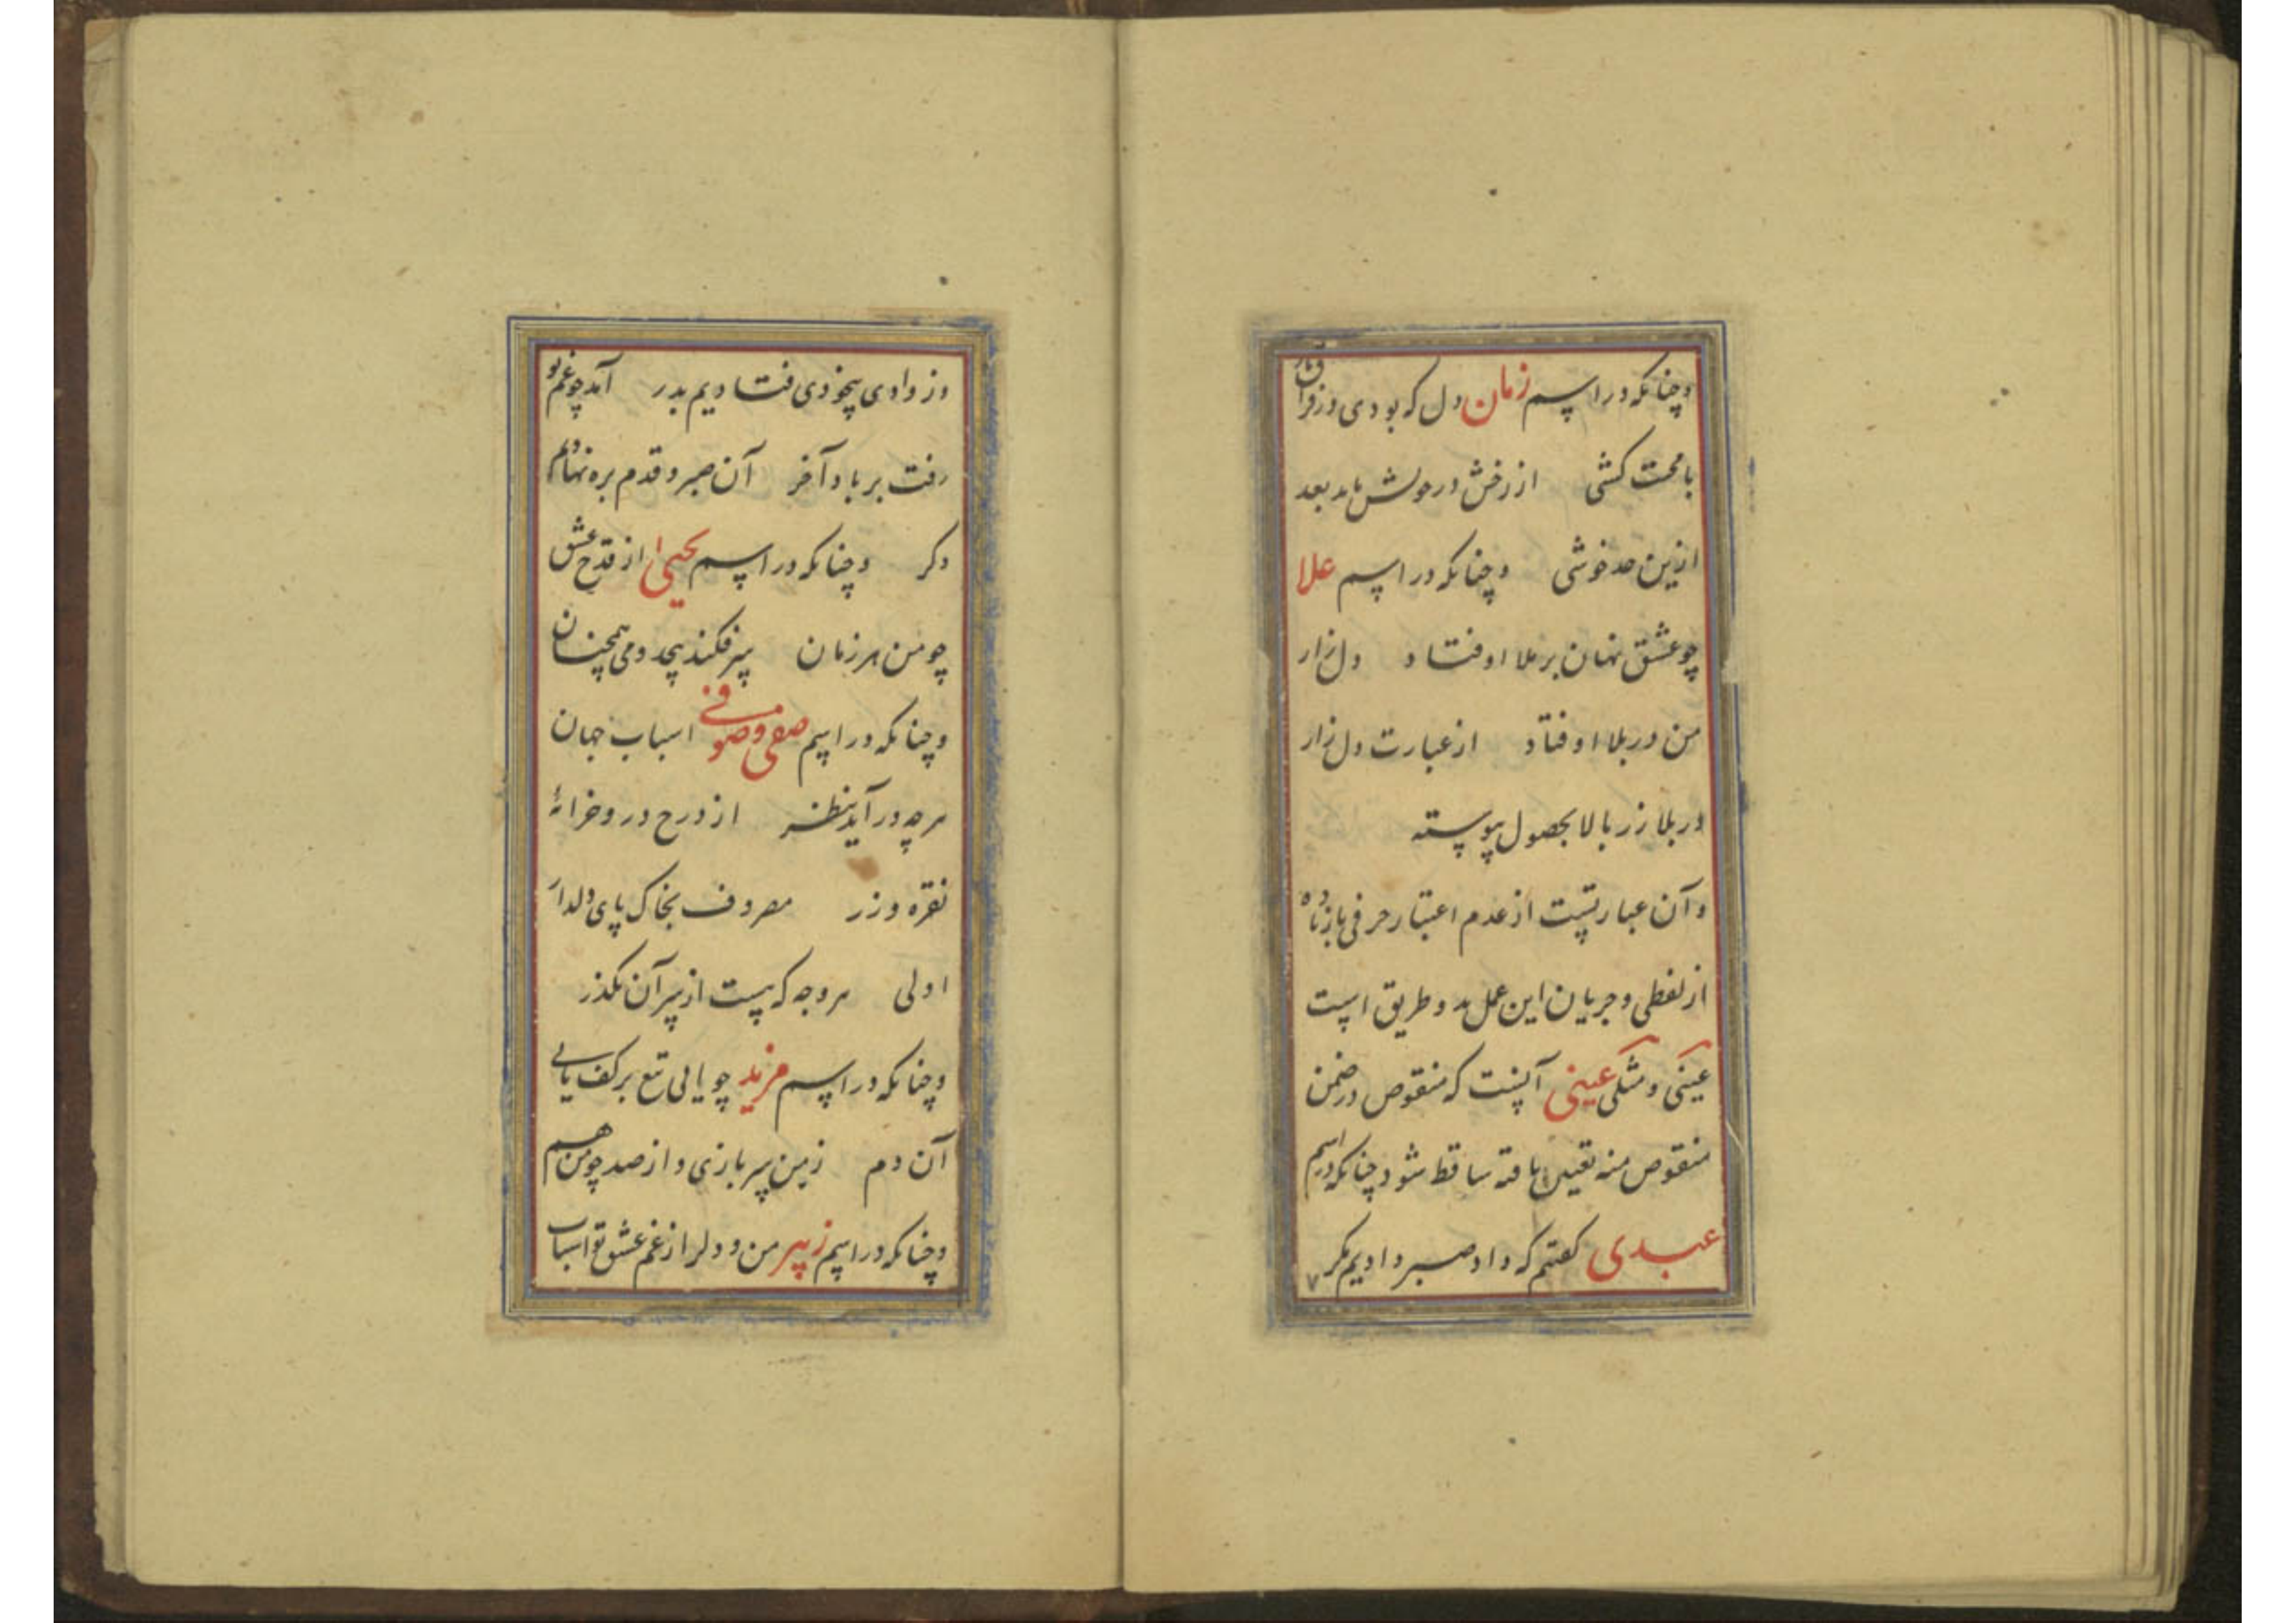 وچنانکه در اسم زمان دل که بودی در فراقش
با محنت کشی از رخش در حولش باید بعد
ازین صد خوشی وچنانکه در اسم علا
چو عشق نهان برملا اوفتاد دل زار
من در بلا اوفتاد از عبارت دل زار
در بلا زر بالا بحصول پیوسته
وآن عبارتست از عدم اعتبار حرفی یا زیاده
از لفظی و جریان این عمل بد و طریق است
عینی و مثلی عینی آنست که منقوص در ضمن
منقوص منه تعیین یافته ساقط شود چنانکه در اسم
عبدی کفتم که داد صبر دادیم مکر
وز وادی بیخودی فتادیم بدر آمد چو غم تو
رفت بر باد آخر آن صبر و قدم بره نهادیم
دکر وچنانکه در اسم یحیی از قدح عشق
چو من هر زمان سر فکند بیحد و می همچنان
وچنانکه در اسم صفی و صوفی اسباب جهان
هرچه در آید بنظر از درج در و خزانهٔ
نقره و زر مصروف بخاک پای دلدار
اولی هر وجه که هست از سر آن بکذر
وچنانکه در اسم مزید چو یابی تیغ بر کف یابی
آن دم زمین سر بازی و از صد چو من هم
وچنانکه در اسم زبیر من و دلرا ز غم عشق تو اسباب